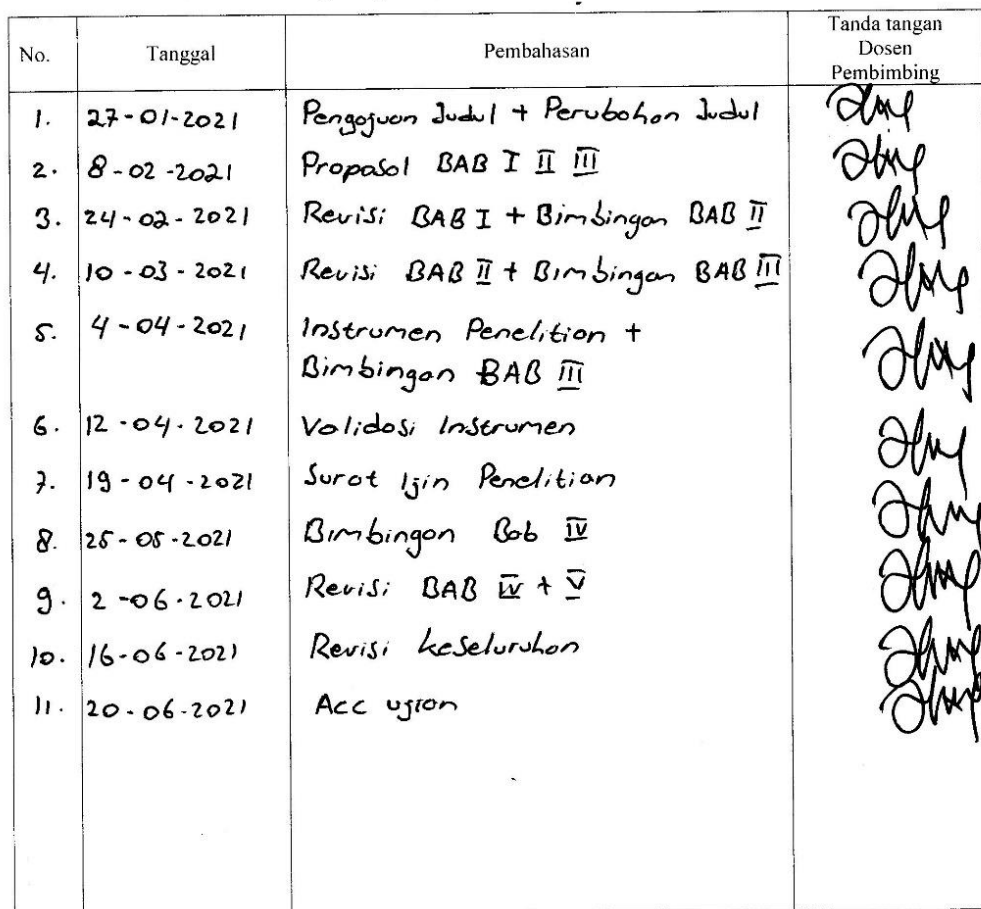 No. Tanggal Pembahasan Tanda tangan Dosen Pembimbing
1. 27-01-2021 Pengajuan Judul + Perubahan Judul
2. 8-02-2021 Proposal BAB I II III
3. 24-02-2021 Revisi BAB I + Bimbingan BAB II
4. 10-03-2021 Revisi BAB II + Bimbingan BAB III
5. 4-04-2021 Instrumen Penelitian +
Bimbingan BAB III
6. 12-04-2021 Validasi Instrumen
7. 19-04-2021 Surat Ijin Penelitian
8. 25-05-2021 Bimbingan Bab IV
9. 2-06-2021 Revisi BAB IV + V
10. 16-06-2021 Revisi keseluruhan
11. 20-06-2021 Acc ujian